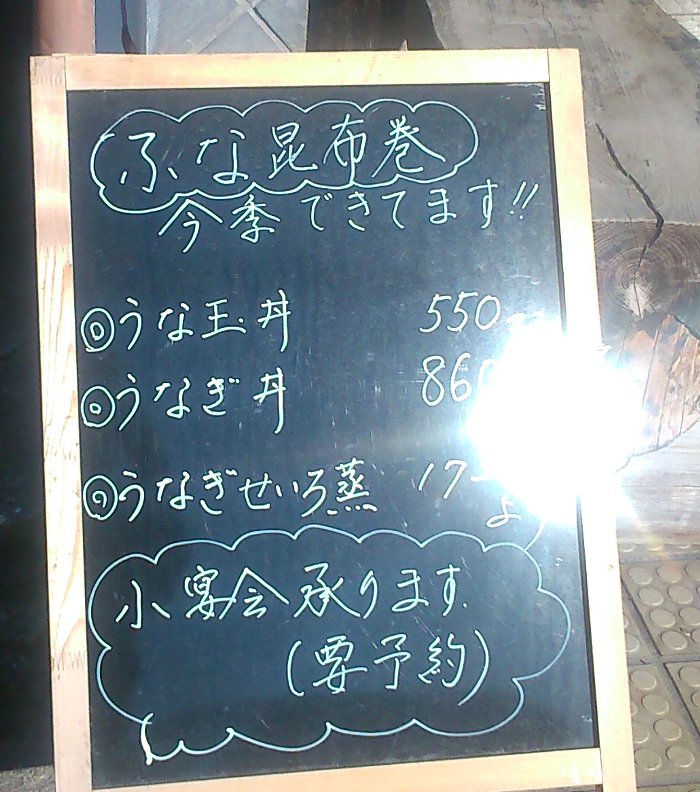 ふな昆布巻
今季できてます!!
◎うな玉丼 550
◎うなぎ丼 860
◎うなぎせいろ蒸 17
より
小宴会承ります.
(要予約)